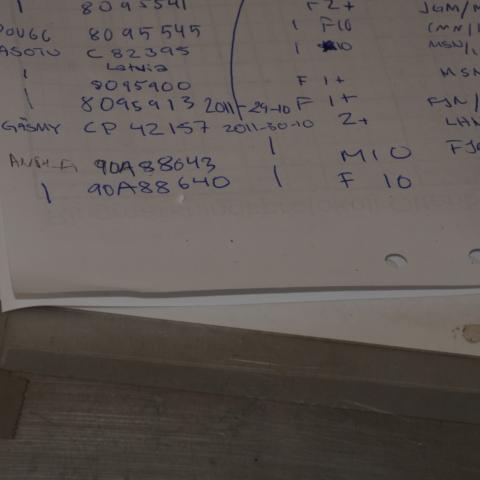 1 8095541 F 2+ JGM/M
DOUGG 8095545 1 F10 CMN/
ASOTU C 82395 1 10 MSN/
Latvia
1 8095900 F 1+ MSN
1 8095913 2011-29-10 F 1+ FJN/
GÄSMY CP 42157 2011-30-10 2+ LHN
90A88643 1 M10 FJG
1 90A88640 1 F 10